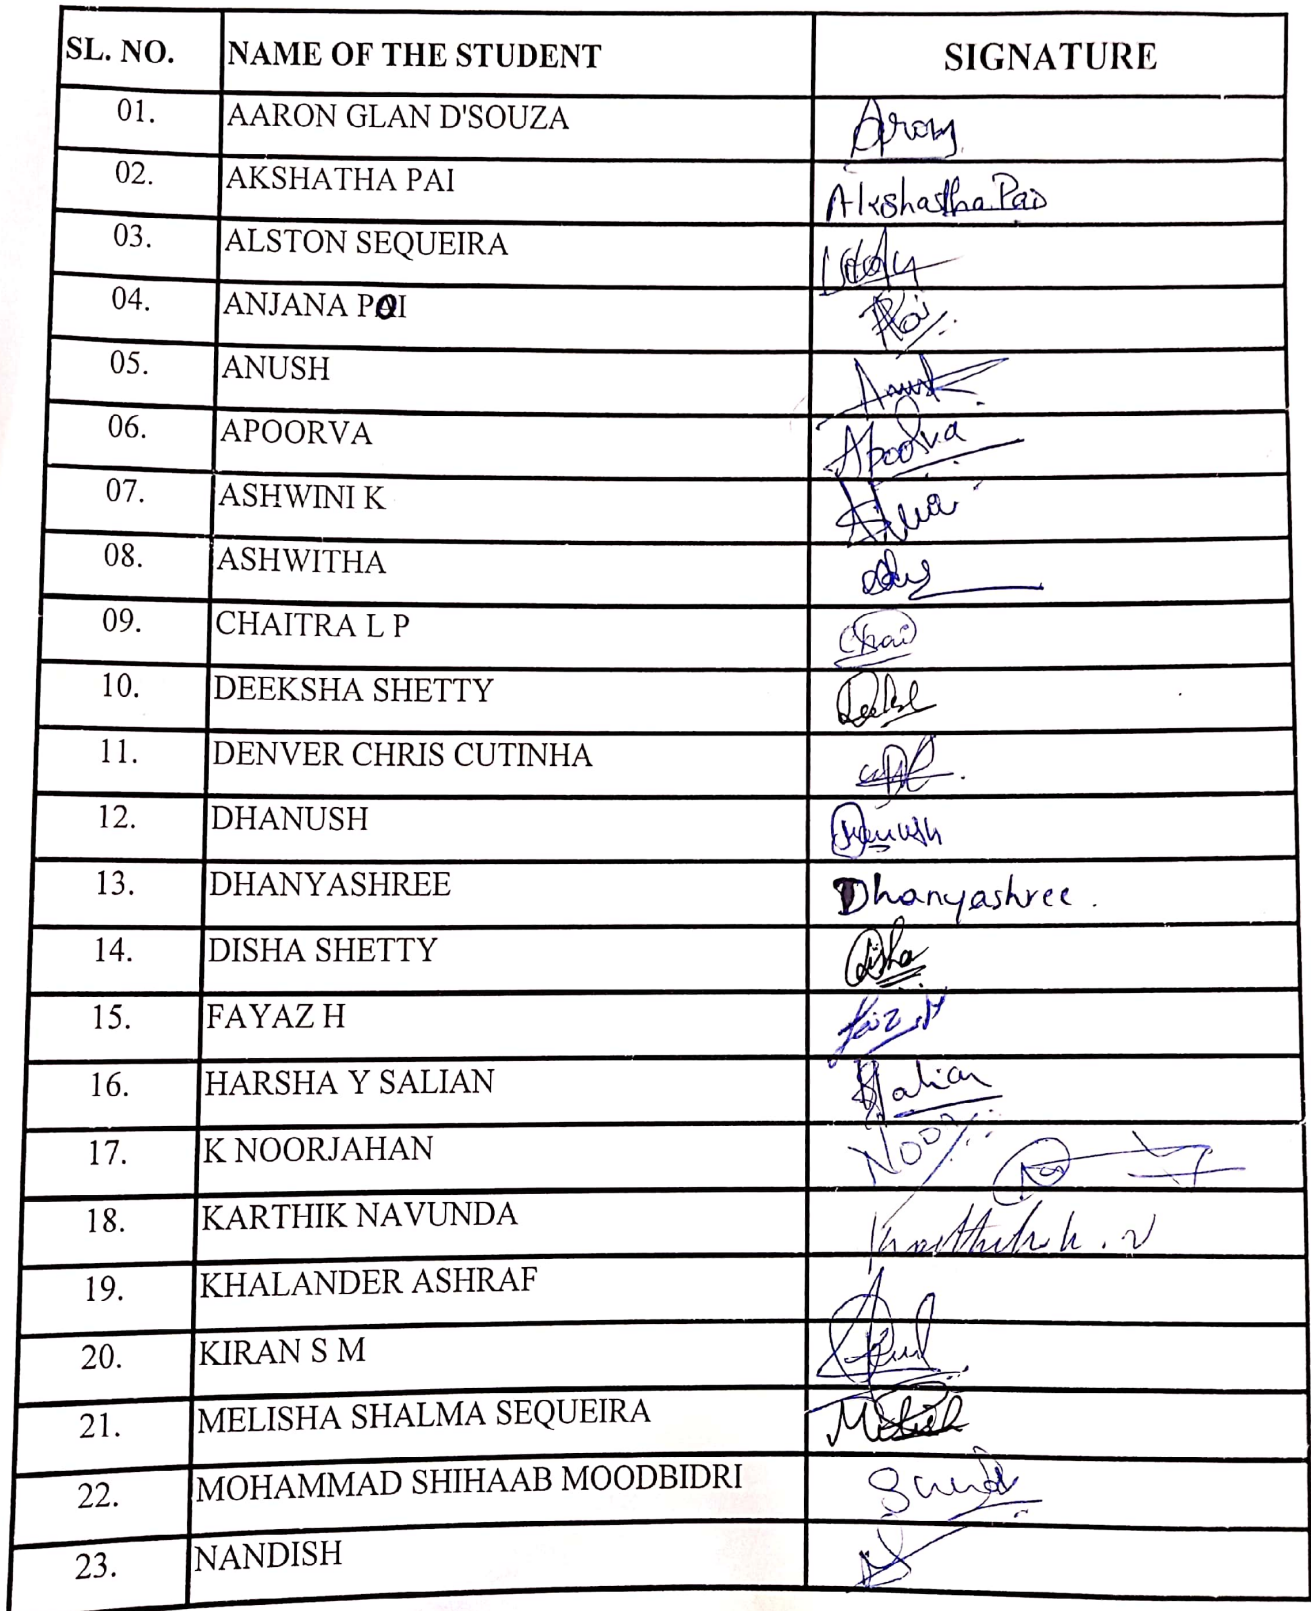 SL. NO. NAME OF THE STUDENT SIGNATURE
01. AARON GLAN D'SOUZA Aron
02. AKSHATHA PAI Akshatha Pai
03. ALSTON SEQUEIRA
04. ANJANA PAI Pai
05. ANUSH Anush
06. APOORVA Apoorva
07. ASHWINI K
08. ASHWITHA
09. CHAITRA L P Chai
10. DEEKSHA SHETTY
11. DENVER CHRIS CUTINHA
12. DHANUSH Dhanush
13. DHANYASHREE Dhanyashree.
14. DISHA SHETTY Disha
15. FAYAZ H
16. HARSHA Y SALIAN HSalian
17. K NOORJAHAN Noor
18. KARTHIK NAVUNDA Karthik. N
19. KHALANDER ASHRAF
20. KIRAN S M
21. MELISHA SHALMA SEQUEIRA
22. MOHAMMAD SHIHAAB MOODBIDRI
23. NANDISH